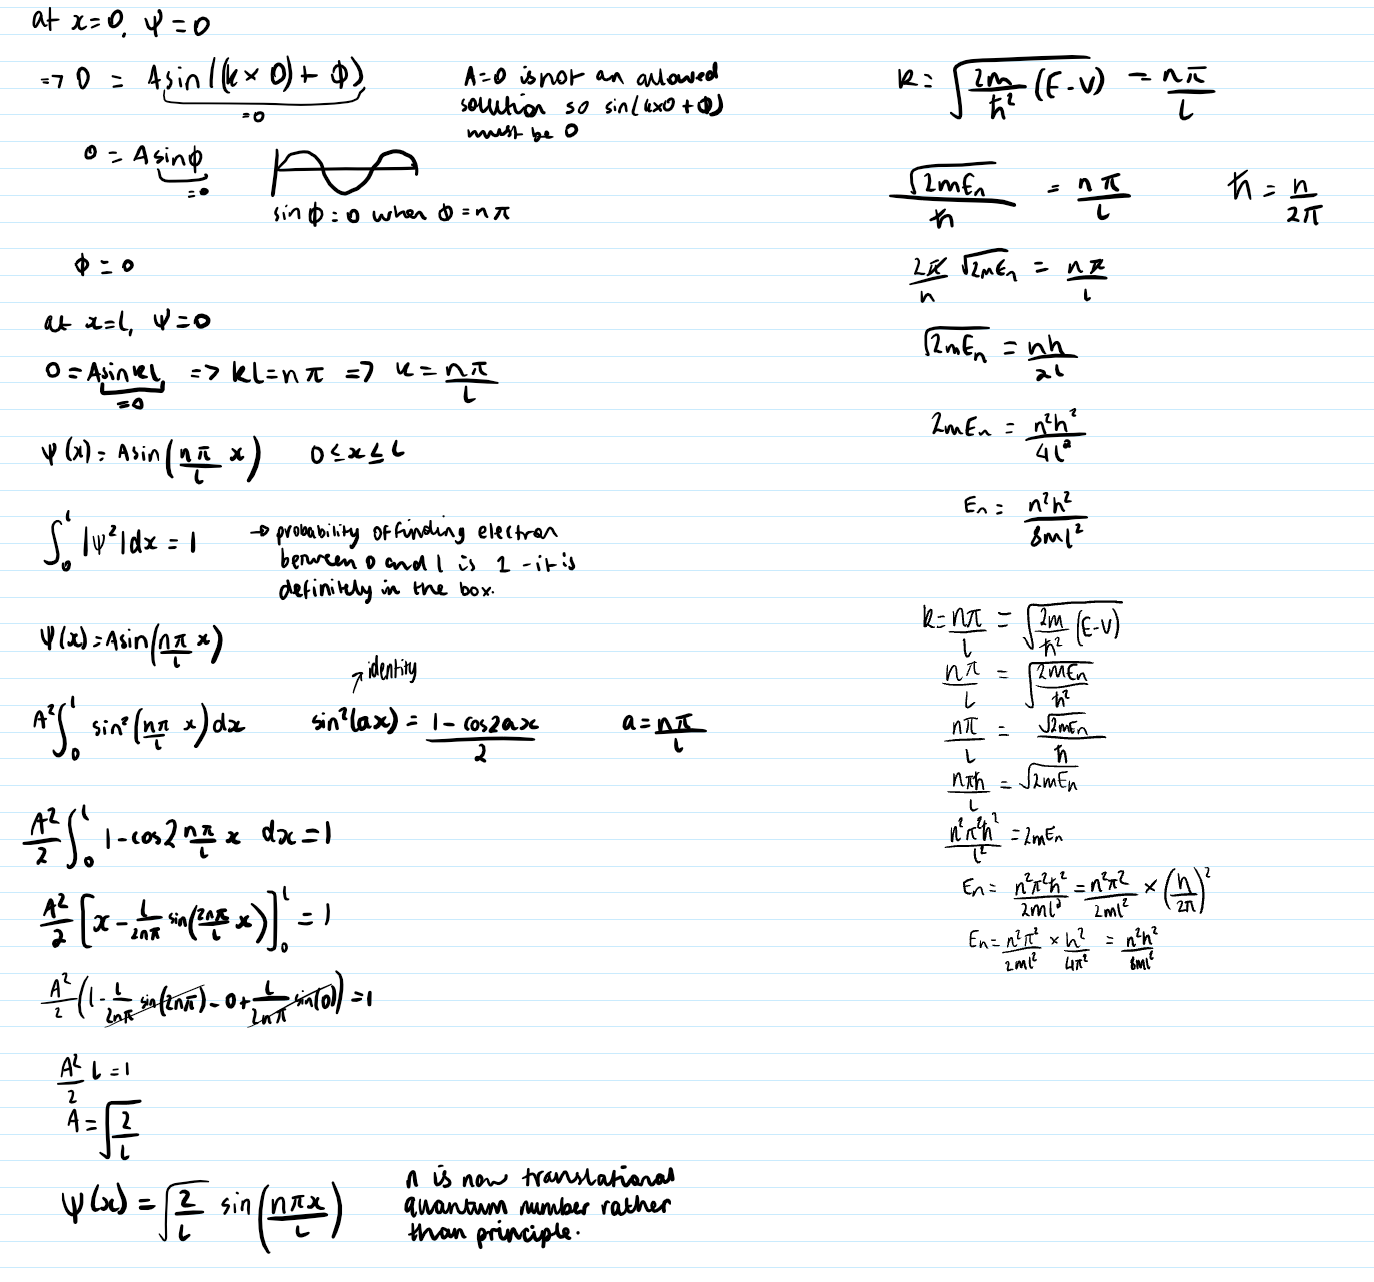 at x=0, ψ=0
=> 0 = Asin((k×0)+ϕ)
=0
A=0 is not an allowed
solution so sin(k×0+ϕ)
must be 0
0 = Asinϕ
=0
sinϕ=0 when ϕ=nπ
ϕ=0
at x=L, ψ=0
0=AsinkL => kL=nπ => k=nπ/L
=0
ψ(x)=Asin(nπ/L x) 0≤x≤L
∫₀ᴸ |ψ²|dx = 1
→ probability of finding electron
between 0 and L is 1 - it is
definitely in the box.
ψ(x)=Asin(nπ/L x)
identity
A²∫₀ᴸ sin²(nπ/L x)dx sin²(ax) = (1-cos2ax)/2 a=nπ/L
A²/2 ∫₀ᴸ 1-cos2nπ/L x dx=1
A²/2 [x - L/2nπ sin(2nπ/L x)]₀ᴸ = 1
A²/2 (L - L/2nπ sin(2nπ) - 0 + L/2nπ sin(0)) = 1
A²/2 L = 1
A = √(2/L)
ψ(x) = √(2/L) sin(nπx/L)
n is now translational
quantum number rather
than principle.
k = √(2m/ħ² (E-V)) = nπ/L
√(2mEn)/ħ = nπ/L ħ = h/2π
2π/h √(2mEn) = nπ/L
√(2mEn) = nh/2L
2mEn = n²h²/4L²
En = n²h²/8mL²
k=nπ/L = √(2m/ħ² (E-V))
nπ/L = √(2mEn/ħ²)
nπ/L = √(2mEn)/ħ
nπħ/L = √(2mEn)
n²π²ħ²/L² = 2mEn
En = n²π²ħ²/2mL² = n²π²/2mL² × (h/2π)²
En = n²π²/2mL² × h²/4π² = n²h²/8mL²